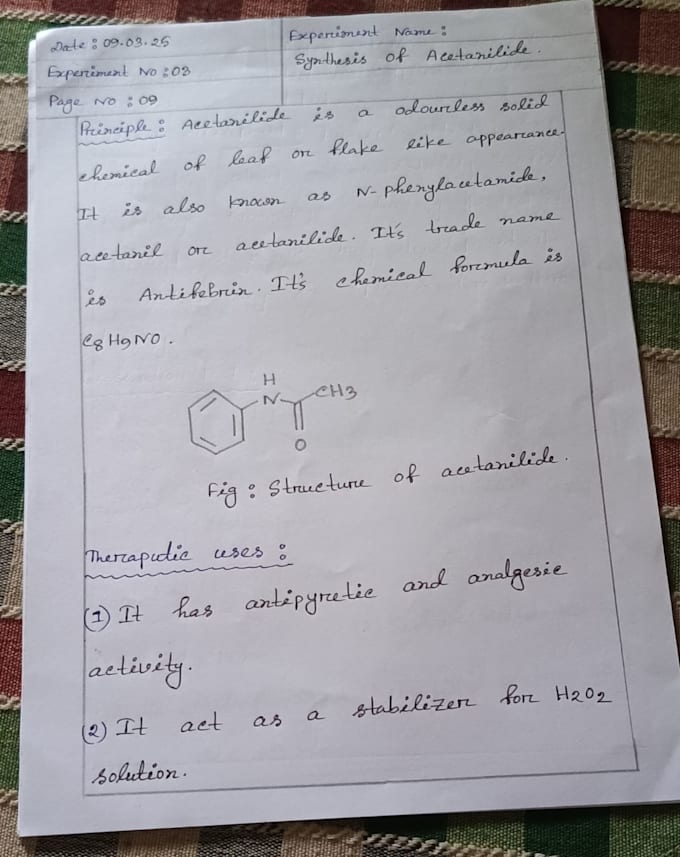 Date : 09.03.25
Experiment No : 03
Page No : 09
Experiment Name :
Synthesis of Acetanilide.
Principle : Acetanilide is a odourless solid
chemical of leaf or flake like appearance.
It is also known as N-phenylacetamide,
acetanil or acetanilide. It's trade name
is Antifebrin. It's chemical formula is
C8H9NO.
H
N
CH3
O
Fig : Structure of acetanilide.
Therapudic uses :
(1) It has antipyretic and analgesic
activity.
(2) It act as a stabilizer for H2O2
solution.